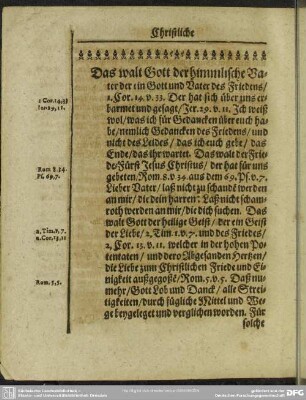 Christliche
Das walt Gott der himmlische Va-
ter der ein Gott und Vater des Friedens/
1. Cor. 14. v. 33. Der hat sich über uns er-
barmet und gesagt/ Jer. 29. v. 11. Ich weiß
wol/ was ich für Gedancken über euch ha-
be/ nemlich Gedancken des Friedens/ und
nicht des Leides/ das ich euch gebe/ das
Ende/ das ihr wartet. Das walt der Frie-
de-Fürst Jesus Christus/ der hat für uns
gebeten, Rom. 8. v 34. aus dem 69. Ps. v. 7.
Lieber Vater/ laß nicht zu schandē werden
an mir/ die dein harren: Laß nicht scham-
roth werden an mir/ die dich suchen. Das
walt Gott der heilige Geist/ der ein Geist
der Liebe/ 2. Tim. 1. v. 7. und des Friedes/
2. Cor. 13. v. 11. welcher in der hohen Po-
tentaten/ und dero Abgesanden Hertzen/
die Liebe zum Christlichen Friede und Ei-
nigkeit außgegoßē/ Rom. 5. v. 5. Daß nu-
mehr/ Gott Lob und Danck/ alle Strei-
tigkeiten/ durch fügliche Mittel und We-
ge beygeleget und verglichen worden. Für
solche
1 Cor. 14. 33
Jer 29, 11.
Rom 8. 34.
Ps. 69. 7.
2. Tim. 1. 7.
2. Cor. 13, 11
Rom. 5, 5.